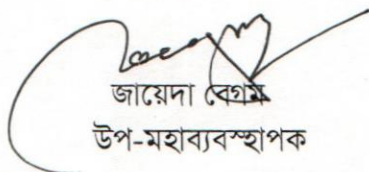 জায়েদা বেগম
উপ-মহাব্যবস্হাপক